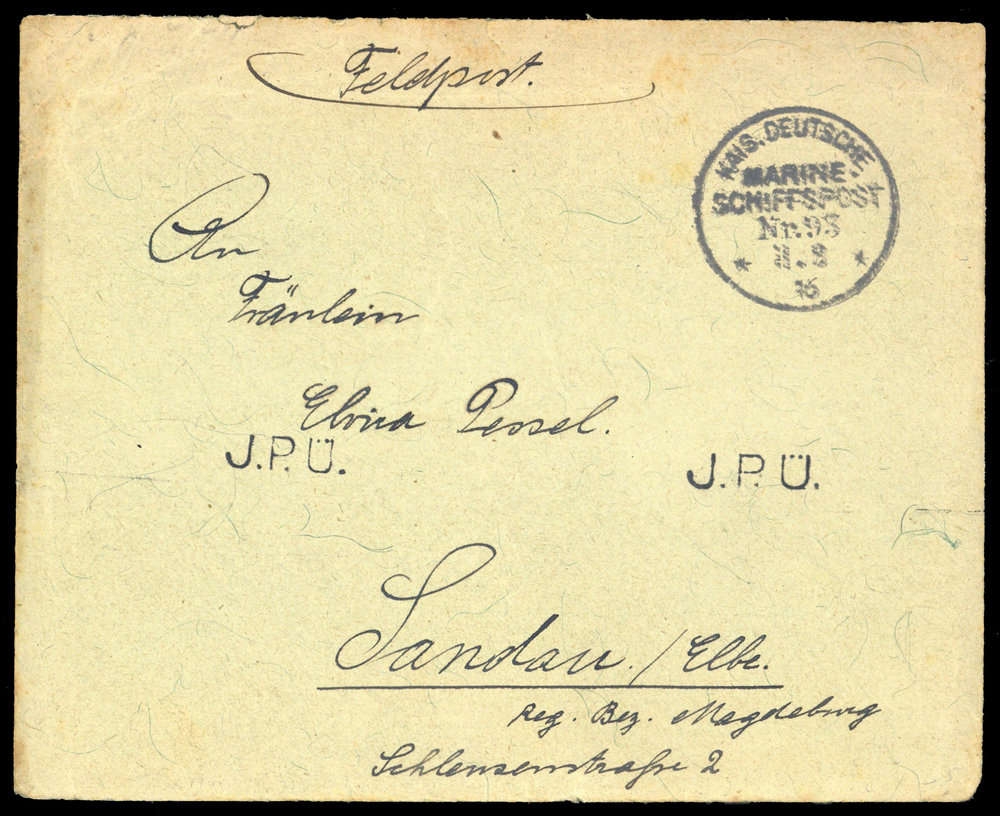 Feldpost.
KAIS. DEUTSCHE
MARINE-
SCHIFFSPOST
Nr. 93
* *
16
An
Fräulein
Elvira Pessel.
J.P.Ü. J.P.Ü.
Sandau./Elbe.
Reg. Bez. Magdeburg
Schleusenstraße 2